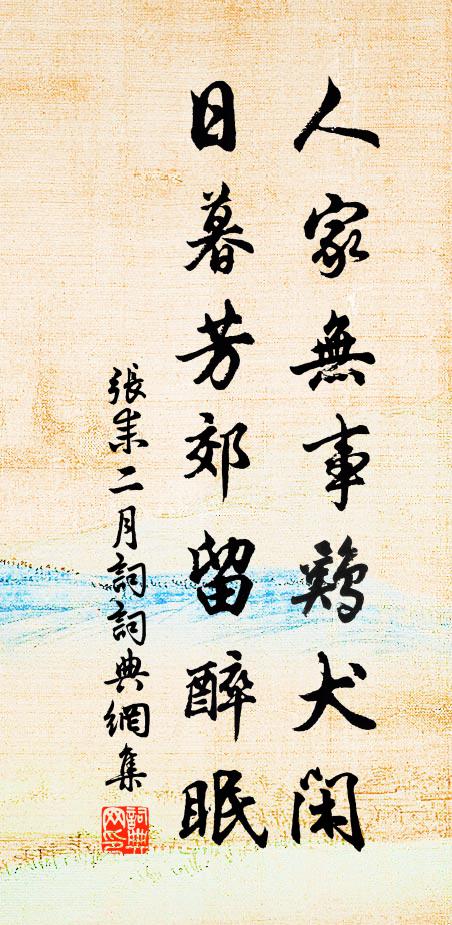 人家無事鷄犬閑
日暮芳郊留醉眠
張耒二月詞詞典網集
詞典
网印